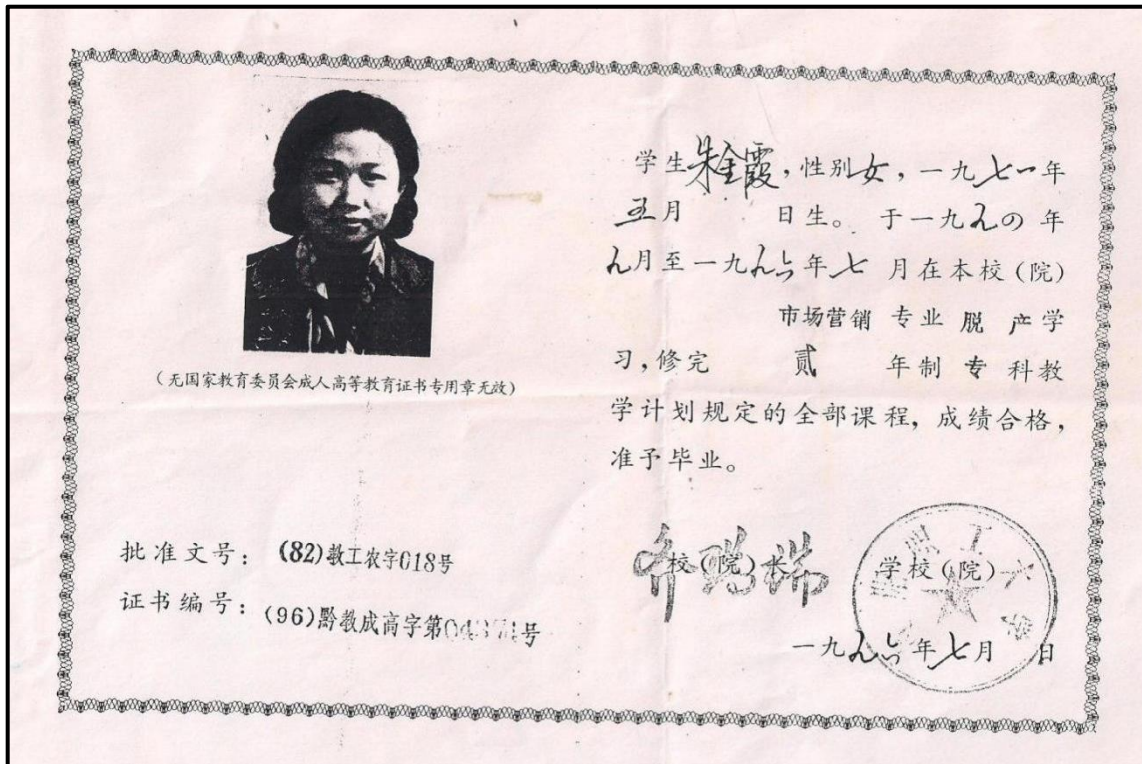 (无国家教育委员会成人高等教育证书专用章无效)
批准文号: (82)教工农字018号
证书编号: (96)黔教成高字第号
学生朱金霞,性别女,一九七一年
五月 日生。于一九九四年
九月至一九九六年七 月在本校(院)
市场营销 专业 脱 产学
习,修完 贰 年制 专 科教
学计划规定的全部课程,成绩合格,
准予毕业。
校(院)长
学校(院)
一九九六年七月 日